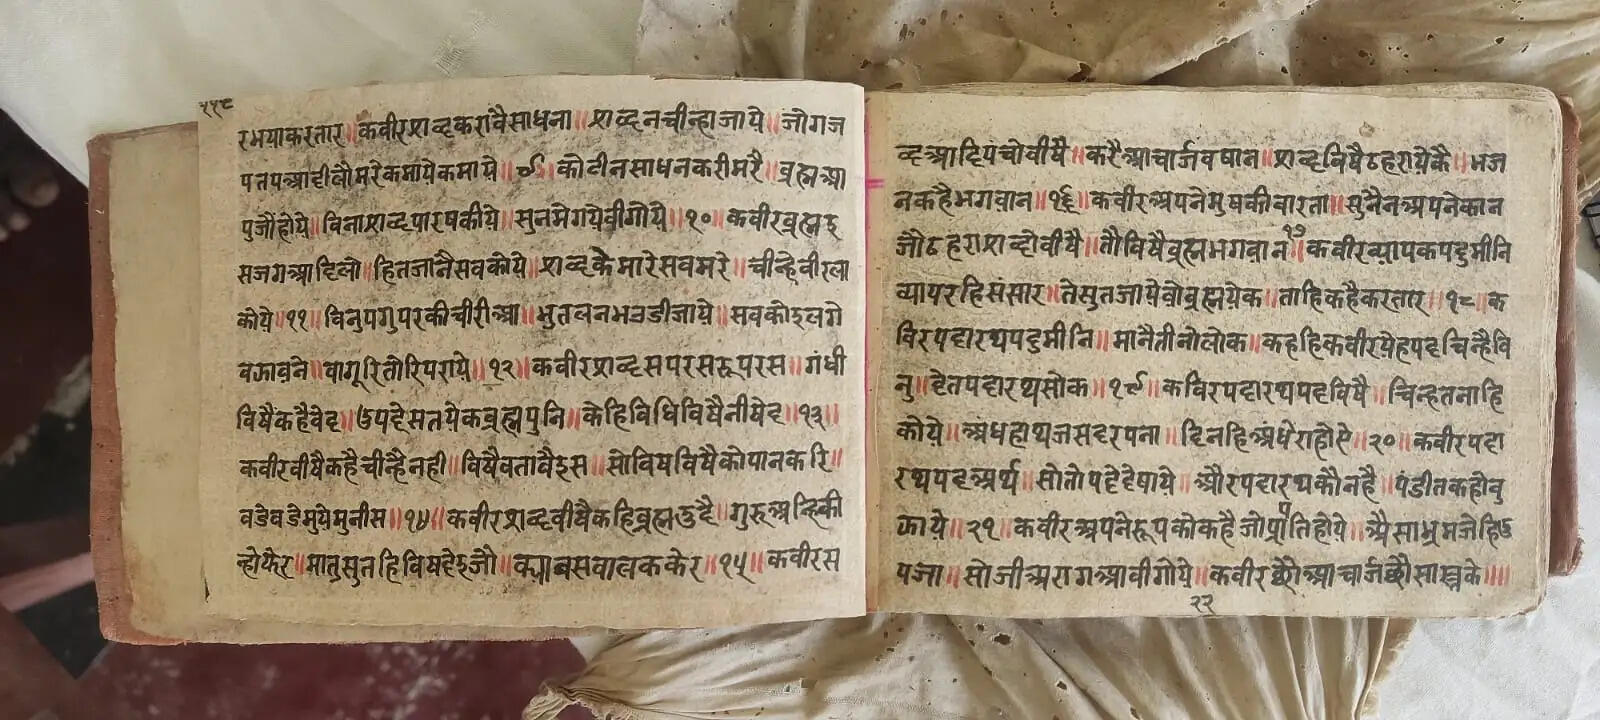 ११८
रभयाकरतार॥कवीरशब्दकरावैसाधना॥शब्दनचीन्हाजाये॥जोगज
पतपआदीलौमरेकमायेकमाये॥९॥कोटीनसाधनकरीमरै॥ब्रह्मआ
पुजौंहोये॥विनाशब्दपारषकीये॥सुनमेगयेवीगोये॥१०॥कवीरब्रह्मइ
सजगआदिलो॥हितजानैसवकोये॥शब्दकेमारेसवमरे॥चीन्हेवीरला
कोये॥११॥विनुपगुपरकीचीरीआ॥
वकावने॥वागूरितोरिपराये॥१२॥कवीरशब्दसपरसरूपरस॥गंधी
विषैकहैवेद॥उपदेसतयेकब्रह्मपुनि॥केहिविधिविषैनीषेद॥१३॥
कवीरवीषैकहैचीन्हैनही॥विषैवतावैइस॥सोविषयविषैकोपानकरि॥
वडेवडेमुयेमुनीस॥१४॥कवीरशब्दवीषैकहिब्रह्महुदै॥गुरूअन्हिकी
न्होफेर॥मातुसुतहिविषदेइजौ॥क्यावसवालककेर॥१५॥कवीरस
व्दआदिपंचोवीषै॥करैआचार्जवषान॥शब्दविषैठहरायेकै॥भज
नकहैभगवान॥१६॥कवीरअपनेमुषकीवारता॥सुनैनअपनेकान
जौठहराशब्दोवीषै॥तौविषैब्रह्मभगवान॥१७कवीरव्यापकपदुमीनि
व्यापरहिसंसार॥तेसुतजायेवोब्रह्मयेक॥ताहिकहैकरतार॥१८॥क
विरपदारथपदुमीनि॥मानैतीनोलोक॥कहहिकवीरयेहपदचिन्हैवि
नु॥देतपदारथसोक॥१९॥कविरपदारथपदविषै॥चिन्हतनाहि
कोये॥अंधहाथजसदरपना॥दिनहिअंधेराहोसे॥२०॥कवीरपदा
रथपदअर्थ॥सोतोपददेषाये॥औरपदारथकौनहै॥पंडीतकहोवु
काये॥२१॥कवीरअपनेरूपकोकहैजोप्राप्तिहोये॥अैसाभ्रमजेहिउ
पजा॥सोजीअरागआवीगोये॥कवीर
२२